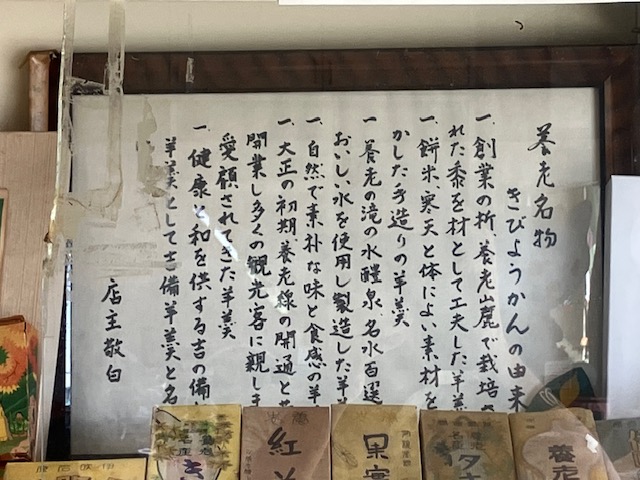 養老名物
きびようかんの由来
一、創業の折、養老山麓で栽培さ
れた黍を材として工夫した羊羹
一、餅米、寒天と体によい素材を
かした手造りの羊羹
一、養老の滝の水醴泉、名水百選
おいしい水を使用し製造した羊
一、自然で素朴な味と食感の羊
一、大正の初期養老線の開通と
開業し多くの観光客に親しま
愛顧されてきた羊羹
一、健康と和を供する吉の備
羊羹として吉備羊羹と名
店主敬白
紅
果実
養老